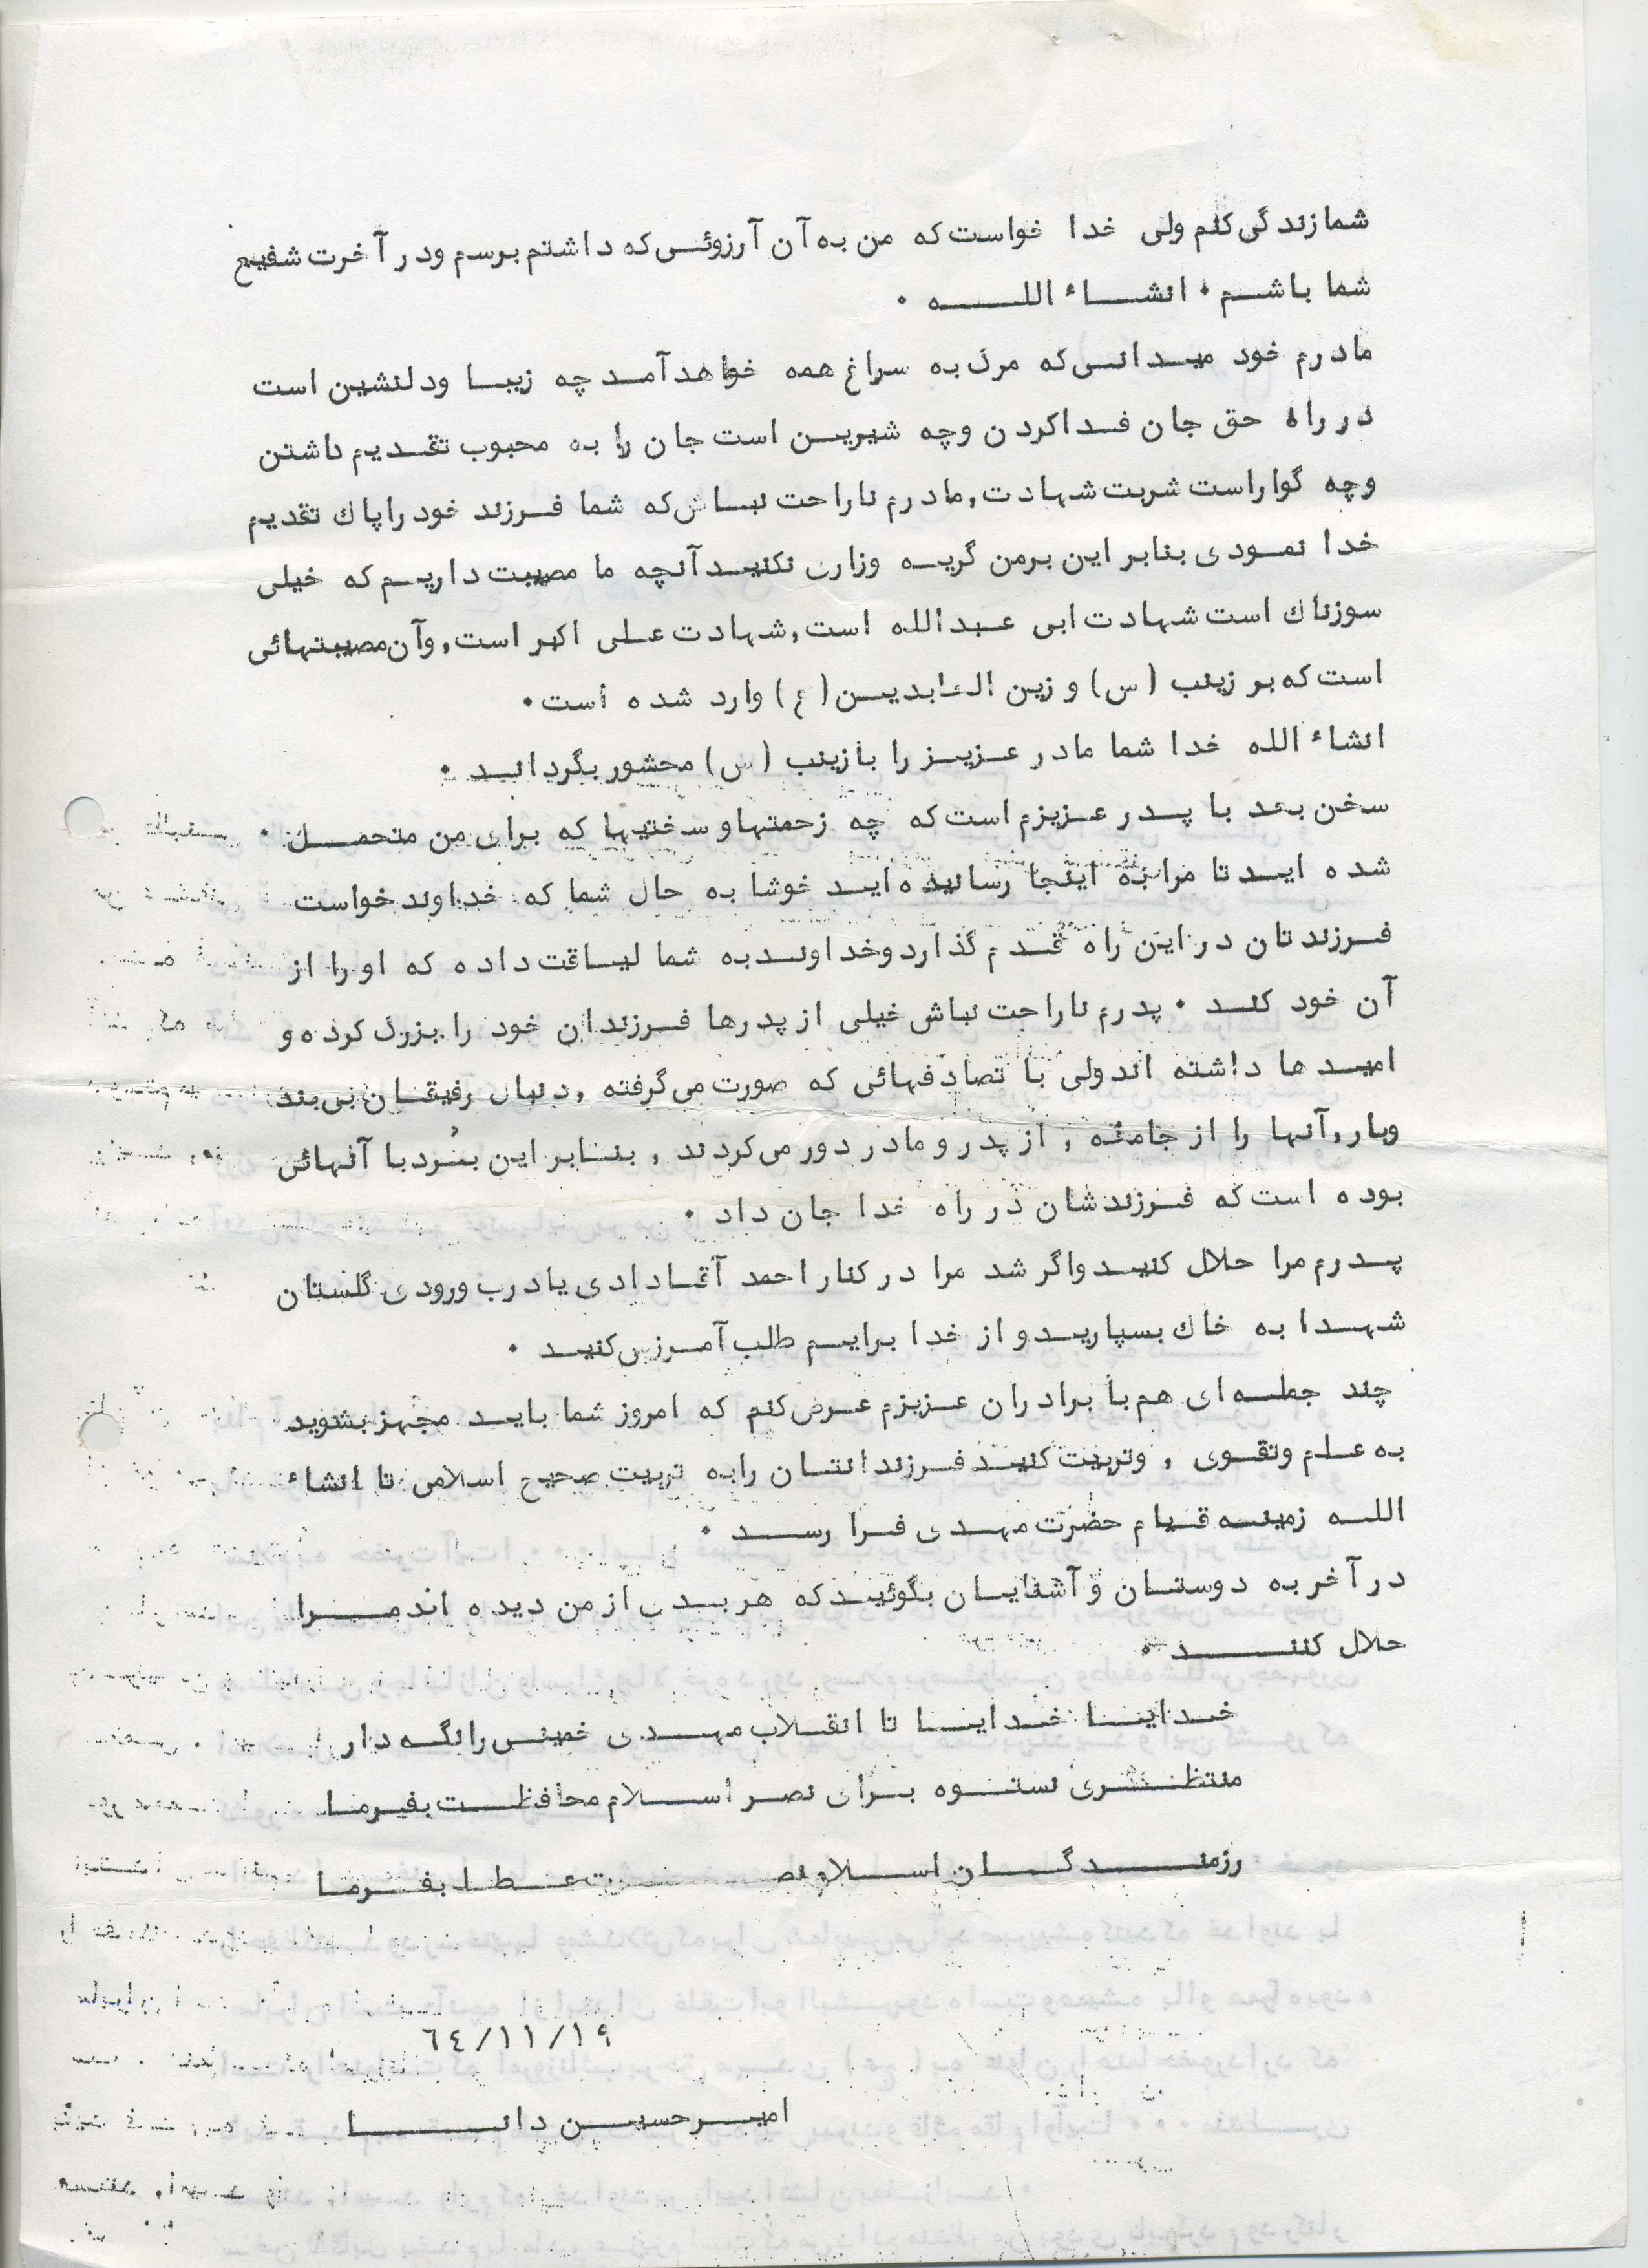 شما زندگی کنم ولی خدا خواست که من به آن آرزوئی که داشتم برسم و در آخرت شفیع
شما باشم ۰ انشاء الله ۰
مادرم خود میدانی که مرگ به سراغ همه خواهد آمد چه زیبا و دلنشین است
در راه حق جان فدا کردن و چه شیرین است جان را به محبوب تقدیم داشتن
و چه گوارا است شربت شهادت , مادرم ناراحت نباش که شما فرزند خود را پاک تقدیم
خدا نمودی بنابر این برمن گریه وزاری نکنید آنچه ما مصیبت داریم که خیلی
سوزناک است شهادت ابی عبدالله است , شهادت علی اکبر است , وآن مصیبتهائی
است که بر زینب (س) و زین العابدین (ع) وارد شده است ۰
انشاء الله خدا شما مادر عزیز را با زینب (س) محشور بگرداند ۰
سخن بعد با پدر عزیزم است که چه زحمتها و سختیها که برای من متحمل
شده اید تا مرا به اینجا رسانیده اید خوشا به حال شما که خداوند خواست
فرزندتان در این راه قدم گذارد و خداوند به شما لیاقت داده که او را از
آن خود کند ۰ پدرم ناراحت نباش خیلی از پدرها فرزندان خود را بزرگ کرده و
امید ها داشته اند ولی با تصادفهائی که صورت می گرفته , دنبال رفیقان بی بند
وبار , آنها را از جامعه , از پدر و مادر دور می کردند , بنابر این برد با آنهائی
بوده است که فرزندشان در راه خدا جان داد ۰
پدرم مرا حلال کنید و اگر شد مرا در کنار احمد آقادادی یا درب ورودی گلستان
شهدا به خاک بسپارید و از خدا برایم طلب آمرزش کنید ۰
چند جمله ای هم با برادران عزیزم عرض کنم که امروز شما باید مجهز بشوید
به علم وتقوی , وتربیت کنید فرزندانتان را به تربیت صحیح اسلامی تا انشاء
الله زمینه قیام حضرت مهدی فرا رسد ۰
در آخر به دوستان و آشنایان بگوئید که هر بدی از من دیده اند مرا
حلال کنند ۰
خدایا خدایا تا انقلاب مهدی خمینی را نگه دار
منتظری نستوه برای نصر اسلام محافظت بفرما
رزمندگان اسلام نصرت عطا بفرما
٦٤/١١/١٩
امیرحسین دانا